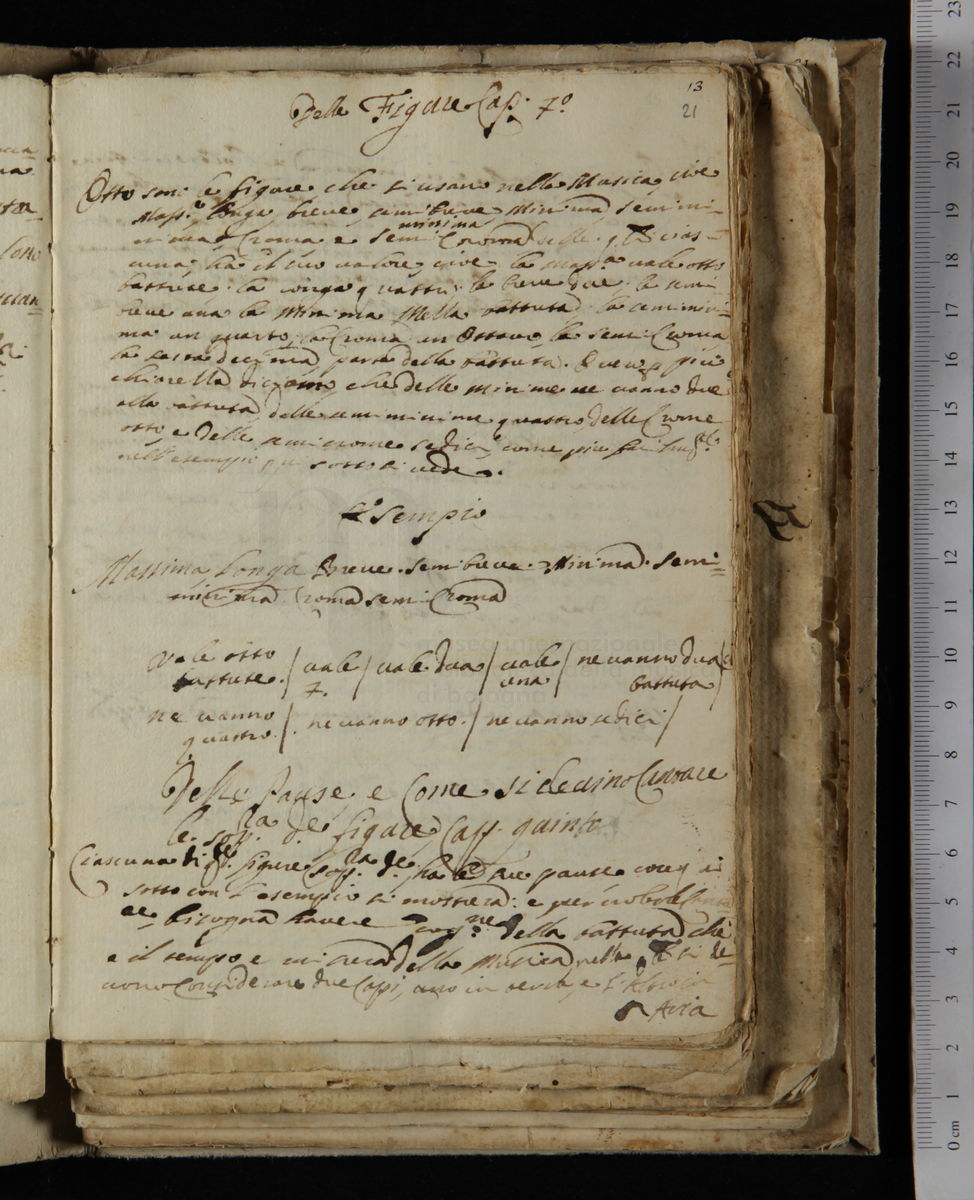 13
Delle Figure Cap. 7º
21
Otto sono le figure che si usano nella Musica cioe
Mass.ª longa breve semibreve Minima Semimi-
minima
nima Croma e Semi Croma delle q. cias-
cuna ha il suo valore cioe la mass.ª vale otto
battute la longa quattro la breve due la semi
breve una la Minima Mezza battuta la semimini-
ma un quarto la Croma un Ottavo la Semi Croma
la sesta decima parte della battuta. più
chiarezza diciamo che delle minime ne vanno due
alla battuta delle semiminime quattro delle Crome
otto e delle semicrome sedici come più
nell'esempio qui sotto si vede.
Esempio
Massima Longa Breve. Semibreve. Minima. Semi=
minima Croma Semi Croma
vale otto / vale / vale dua / vale / ne vanno dua
battute. 4. una battuta
ne vanno / ne vanno otto. / ne vanno sedici /
quattro.
Delle Pause e Come si devino Cantare
le sop.ª de figure Cap. quinto
Ciascuna di q.te figure sop.ª de. ha le sue pause
sotto con l'esempio si mostrera: e per cio
bisogna havere cog.ne della battuta che
e il tempo e misura della Musica nella si de-
vono Considerare due Capi, uno in
Aria